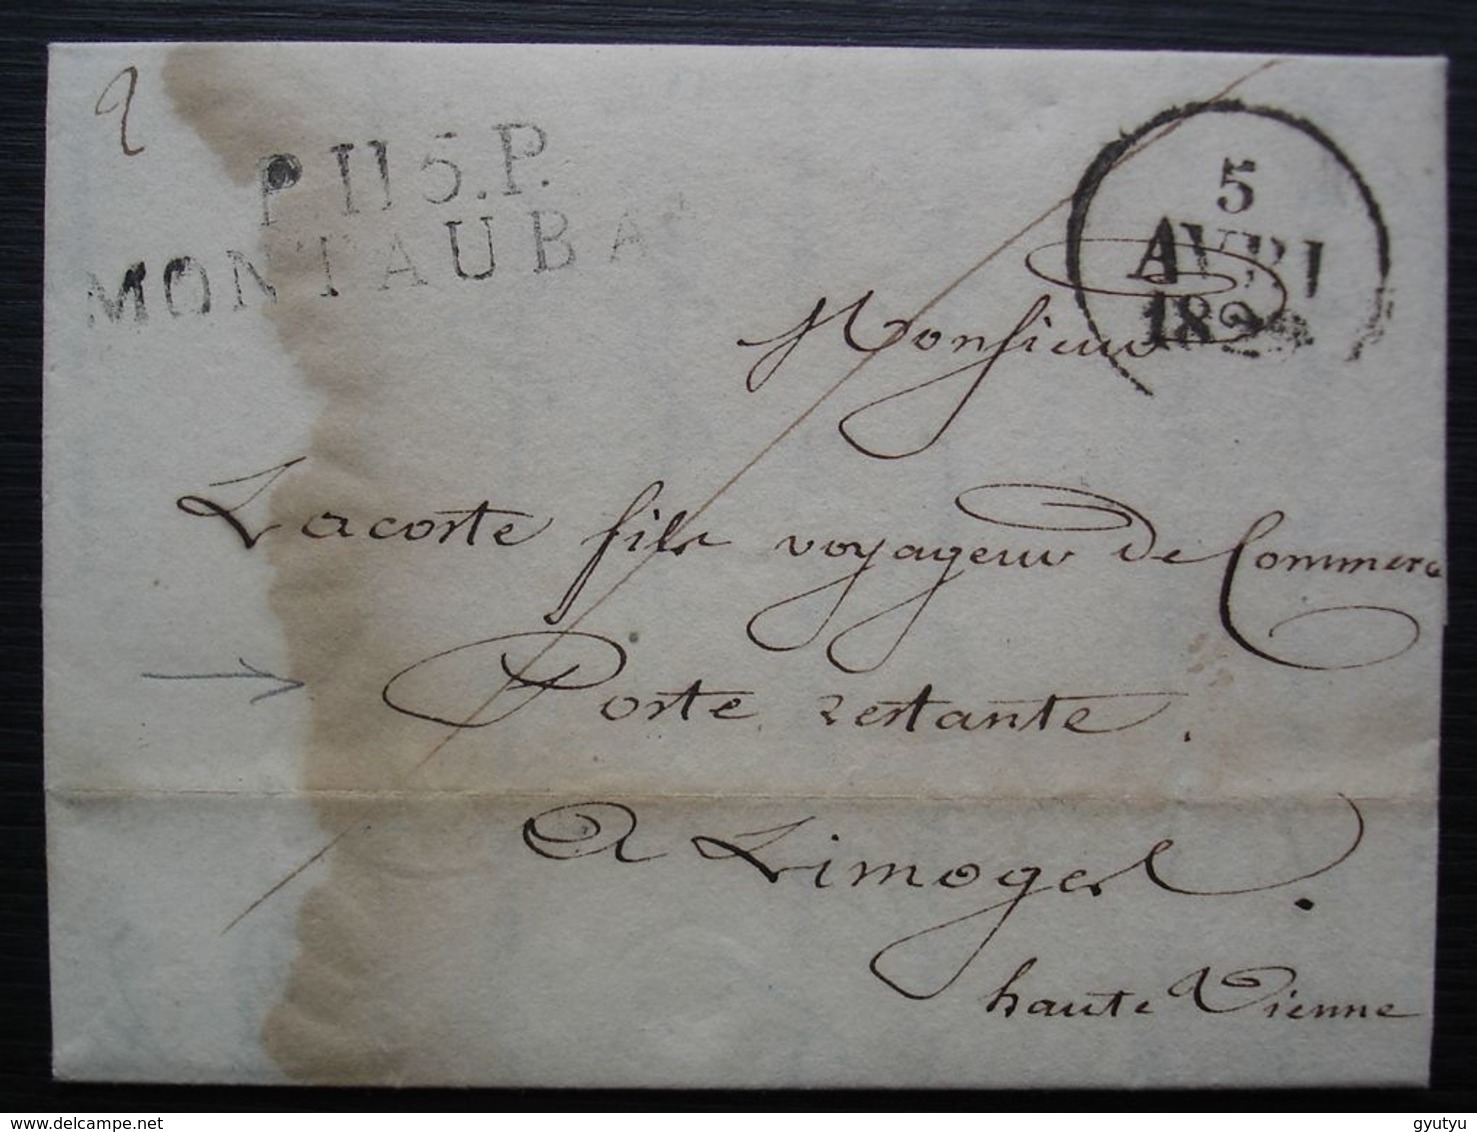 P.115.P.
MONTAUBA
5
AVRI
182
Monsieur
Lacoste fils voyageur de Commerce
Poste restante.
A Limoges.
haute Vienne
delcampe.net
gyutyu